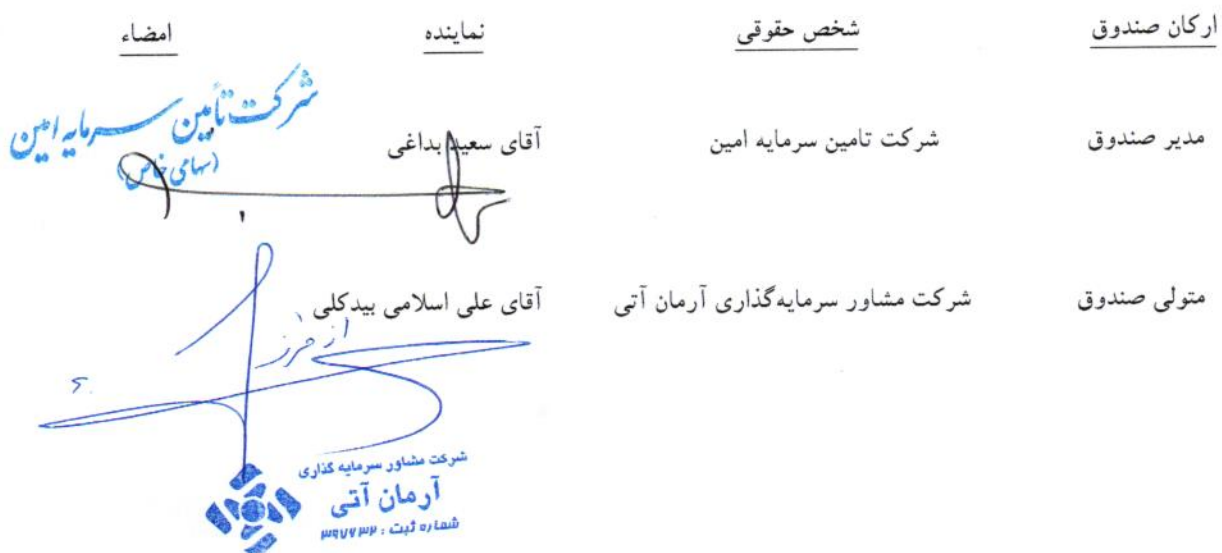 ارکان صندوق شخص حقوقی نماینده امضاء
شرکت تأمین سرمایه امین
(سهامی خاص)
مدیر صندوق شرکت تامین سرمایه امین آقای سعید بداغی
متولی صندوق شرکت مشاور سرمایه‌گذاری آرمان آتی آقای علی اسلامی بیدکلی
شرکت مشاور سرمایه گذاری
آرمان آتی
شماره ثبت : ۳۹۷۷۳۲